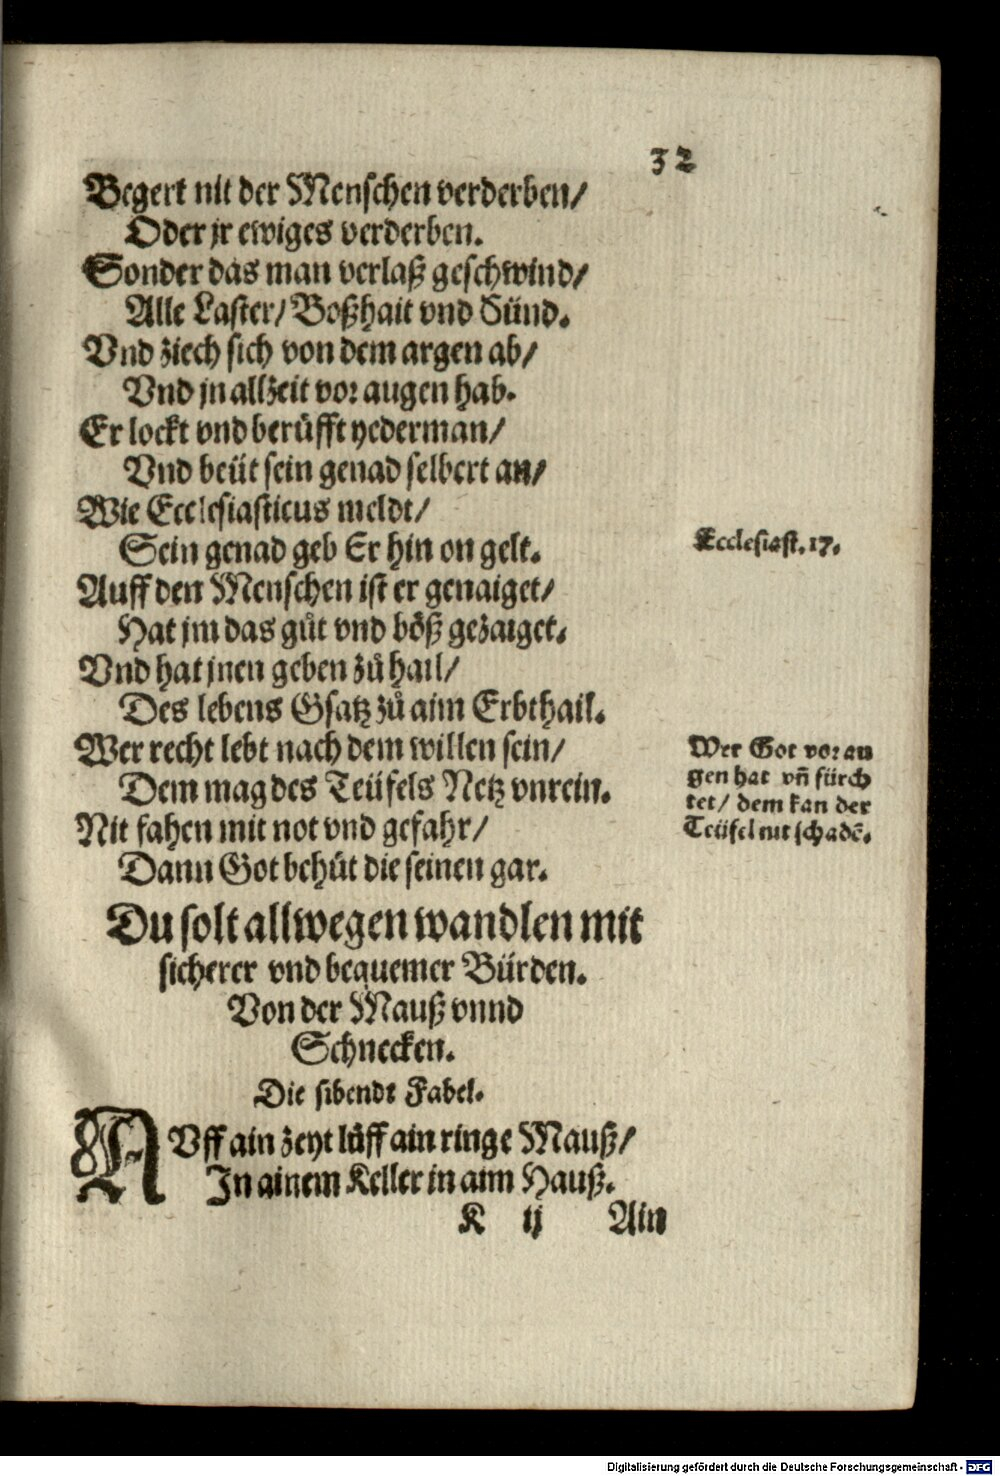 32
Begert nit der Menschen verderben/
Oder jr ewiges verderben.
Sonder das man verlaß geschwind/
Alle Laster/ Boßhait vnd Sünd.
Vnd ziech sich von dem argen ab/
Vnd jn allzeit vor augen hab.
Er lockt vnd berüfft yederman/
Vnd beüt sein genad selbert an/
Wie Ecclesiasticus meldt/
Sein genad geb Er hin on gelt.
Ecclesiast. 17.
Auff den Menschen ist er genaiget/
Hat jm das gůt vnd böß gezaiget.
Vnd hat jnen geben zů hail/
Des lebens Gsatz zů aim Erbthail.
Wer recht lebt nach dem willen sein/
Dem mag des Teüfels Netz vnrein.
Nit fahen mit not vnd gefahr/
Dann Got behůt die seinen gar.
Wer Got vor au
gen hat vñ fürch
tet/ dem kan der
Teüfel nit schadē.
Du solt allwegen wandlen mit
sicherer vnd bequemer Bürden.
Von der Mauß vnnd
Schnecken.
Die sibendt Fabel.
AVff ain zeyt lůff ain ringe Mauß/
In ainem Keller in aim Hauß.
K ij Ain
Digitalisierung gefördert durch die Deutsche Forschungsgemeinschaft - DFG